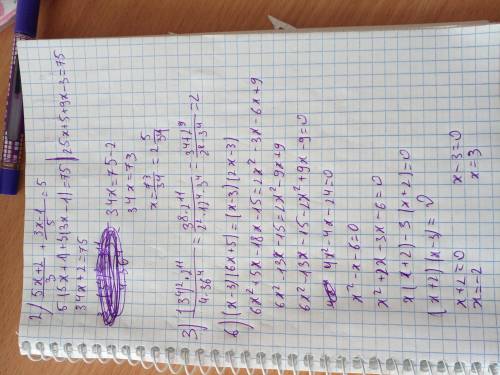 2) (5x+2)/3 + (3x-1)/5 = 5
5(5x+1)+3(3x-1)=75 | 25x+5+9x-3=75
34x+2=75
34x=75-2
34x=73
x=73/34=2 5/34
6) (x-3)(6x+5)=(x-3)(2x-3)
6x²+5x-18x-15=2x²-3x-6x+9
6x²-13x-15=2x²-9x+9
6x²-13x-15-2x²+9x-9=0
4x²-4x-24=0
x²-x-6=0
x²+2x-3x-6=0
x(x+2)-3(x+2)=0
(x+2)(x-3)=0
x+2=0 x-3=0
x=-2 x=3